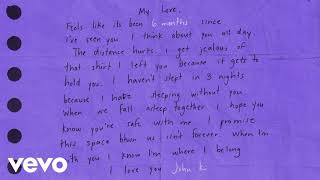 My Love,
Feels like its been 6 months since
I've seen you. I think about you all day.
The distance hurts. I get jealous of
that shirt I left you because it gets to
hold you. I haven't slept in 3 nights
because I hate sleeping without you.
When we fall asleep together I hope you
know you're safe with me. I promise
this space btwn us isn't forever. When I'm
with you I know I'm where I belong
I love you John K
vevo